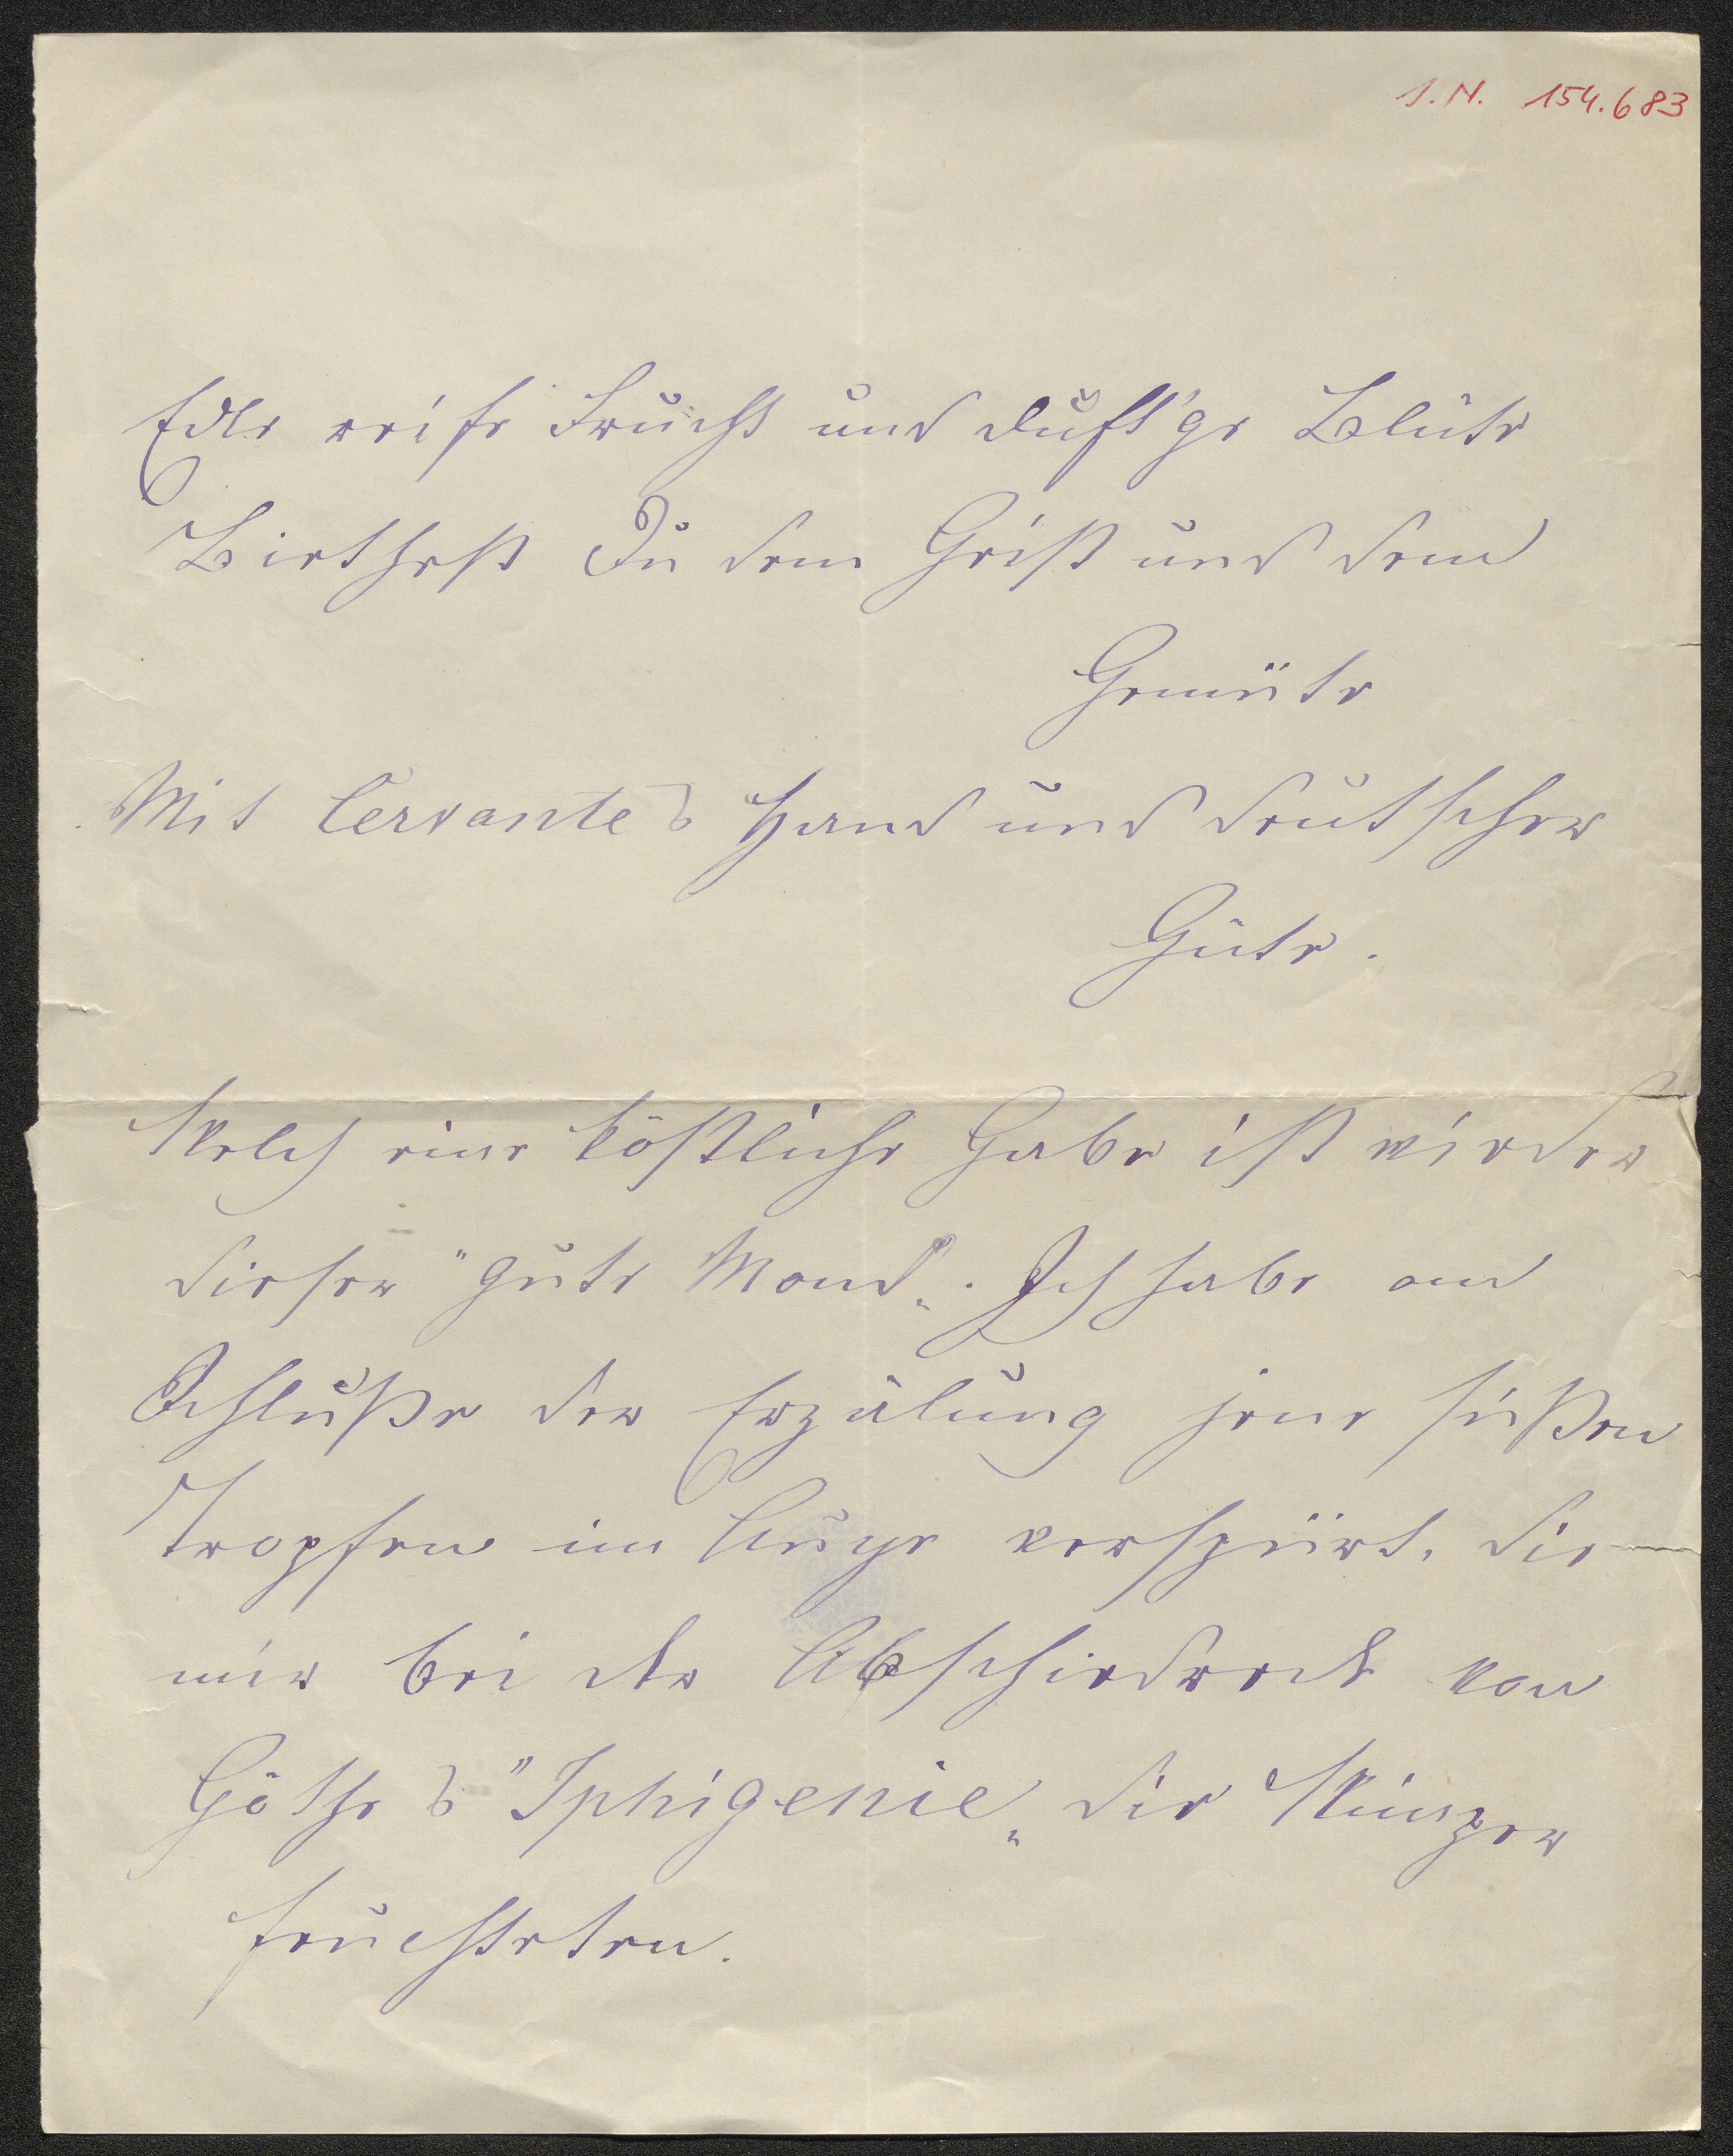 I.N. 154.683
Edle reife Frucht und duft'ge Blüte
Biethest Du dem Geist und dem
Gemüte
Mit Cervantes Hand und deutscher
Güte.
Welch eine köstliche Gabe ist wieder
dieser "gute Mond„. Ich habe am
Schluße der Erzälung jene süßen
Tropfen im Auge verspürt, die
mir bei der Abschiedrede von
Göthes "Iphigenie„ die Wimper
feuchteten.